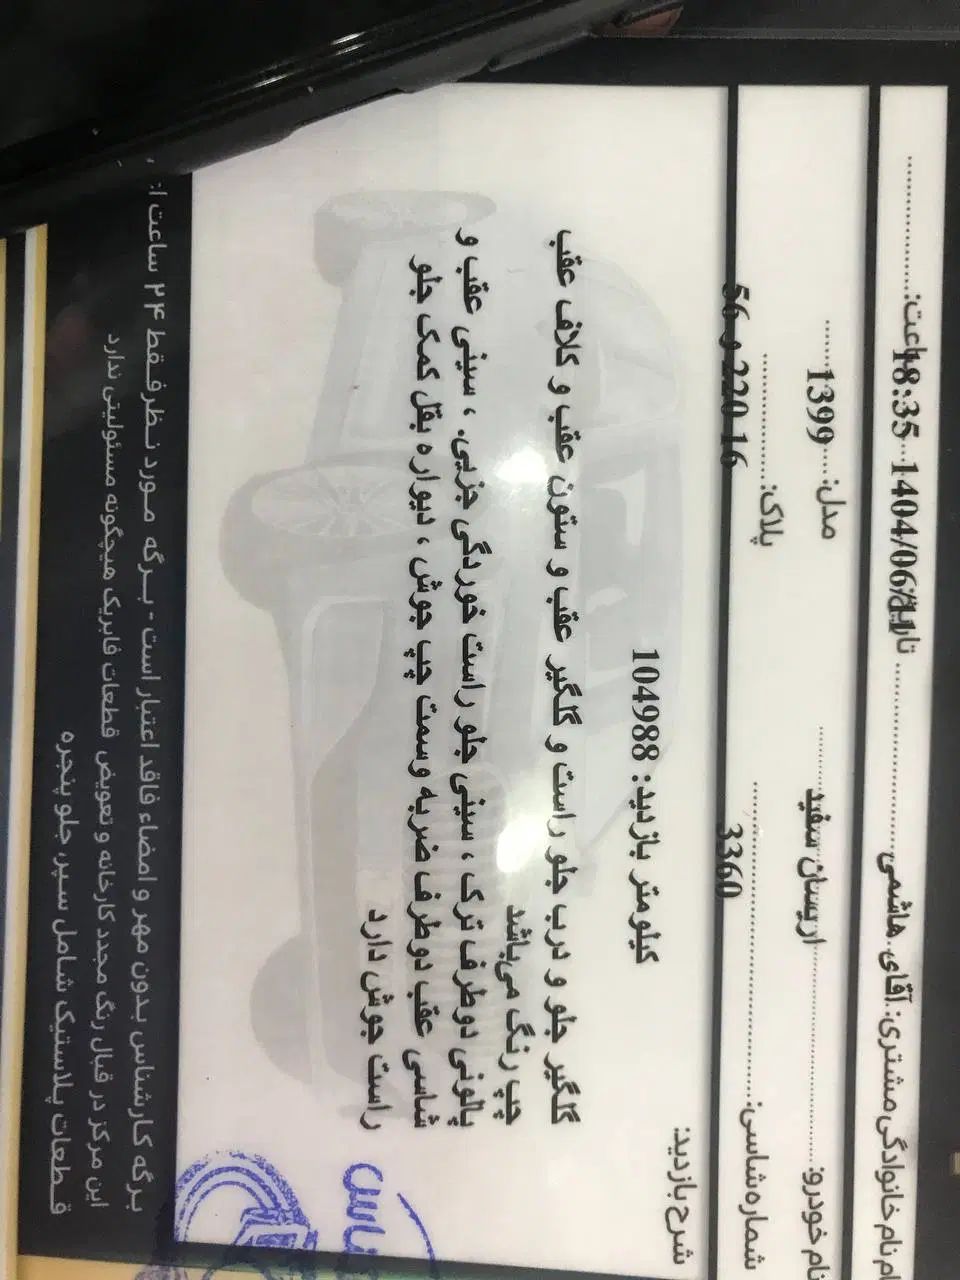 نام خانوادگی مشتری: آقای هاشمی تاریخ: 1404/06/ ساعت: 18:35
نام خودرو: اریسان سفید مدل: 1399
شماره شاسی: 3360 پلاک: 56 و 220 16
شرح بازدید:
کیلومتر بازدید: 104988
گلگیر جلو و درب جلو راست و گلگیر عقب و ستون عقب و کلاف عقب
چپ رنگ می‌باشد
پالونی دوطرف ترک ، سینی جلو راست خوردگی جزیی. ، سینی عقب و
شاسی عقب دوطرف ضربه وسمت چپ جوش ، دیواره بقل کمک جلو
راست جوش دارد
برگه کارشناس بدون مهر و امضاء فاقد اعتبار است - برگه مورد نظر فقط ۲۴ ساعت
این مرکز در قبال رنگ مجدد کارخانه و تعویض قطعات فابریک هیچگونه مسئولیتی ندارد
قطعات پلاستیک شامل سپر، جلو پنجره